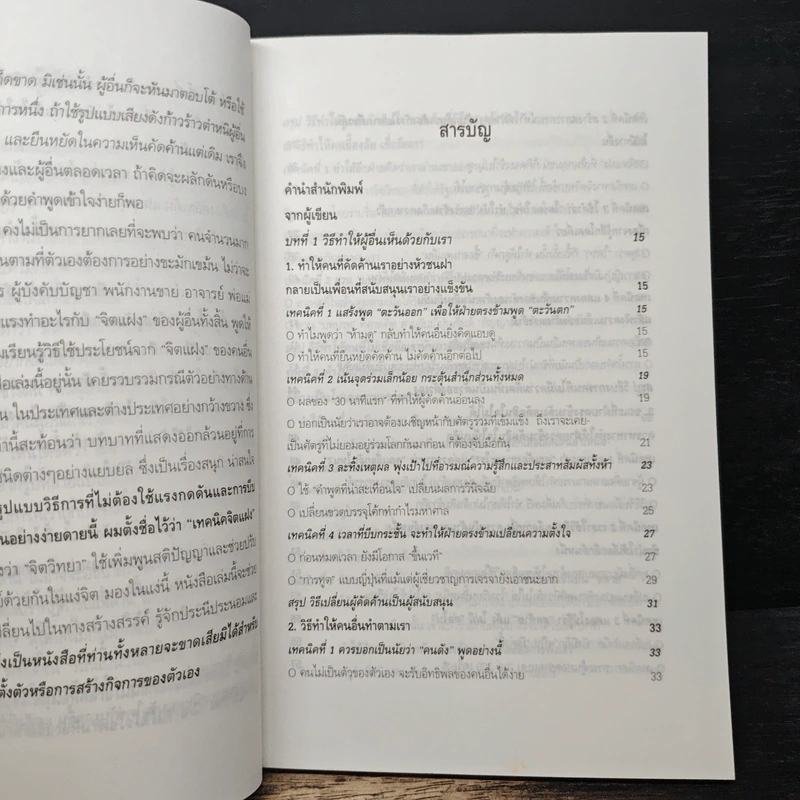 ด็ดขาด มิเช่นนั้น ผู้อื่นก็จะหันมาตอบโต้ หรือใช้
การหนึ่ง ถ้าใช้รูปแบบเสียงดังก้าวร้าวตำหนิผู้อื่น
และยืนหยัดในความเห็นคัดค้านแต่เดิม เราจึง
และผู้อื่นตลอดเวลา ถ้าคิดจะผลักดันหรือบง
ด้วยคำพูดเข้าใจง่ายก็พอ
คงไม่เป็นการยากเลยที่จะพบว่า คนจำนวนมาก
นตามที่ตัวเองต้องการอย่างขะมักเขม้น ไม่ว่าจะ
ร ผู้บังคับบัญชา พนักงานขาย อาจารย์ พ่อแม่
แรงทำอะไรกับ “จิตแฝง” ของผู้อื่นทั้งสิ้น พูดให้
มเรียนรู้วิธีใช้ประโยชน์จาก “จิตแฝง” ของคนอื่น
อเล่มนี้อยู่นั้น เคยรวบรวมกรณีตัวอย่างทางด้าน
น ในประเทศและต่างประเทศอย่างกว้างขวาง ซึ่ง
านี้สะท้อนว่า บทบาทที่แสดงออกล้วนอยู่ที่การ
ชนิดต่างๆอย่างแยบยล ซึ่งเป็นเรื่องสนุก น่าสนใจ
รูปแบบวิธีการที่ไม่ต้องใช้แรงกดดันและการบีบ
นอย่างง่ายดายนี้ ผมตั้งชื่อไว้ว่า “เทคนิคจิตแฝง”
งว่า “จิตวิทยา” ใช้เพิ่มพูนสติปัญญาและช่วยปรับ
ย์ด้วยกันในแง่จิต มองในแง่นี้ หนังสือเล่มนี้จะช่วย
ปลี่ยนไปในทางสร้างสรรค์ รู้จักประนีประนอมและ
งเป็นหนังสือที่ท่านทั้งหลายจะขาดเสียมิได้สำหรับ
ตั้งตัวหรือการสร้างกิจการของตัวเอง
สารบัญ
คำนำสำนักพิมพ์
จากผู้เขียน
บทที่ 1 วิธีทำให้ผู้อื่นเห็นด้วยกับเรา 15
1. ทำให้คนที่คัดค้านเราอย่างหัวชนฝา
กลายเป็นเพื่อนที่สนับสนุนเราอย่างแข็งขัน 15
เทคนิคที่ 1 แสร้งพูด “ตะวันออก” เพื่อให้ฝ่ายตรงข้ามพูด “ตะวันตก” 15
O ทำไมพูดว่า “ห้ามดู” กลับทำให้คนอื่นยิ่งคิดแอบดู 15
O ทำให้คนที่ยืนหยัดคัดค้าน ไม่คัดค้านอีกต่อไป 15
เทคนิคที่ 2 เน้นจุดร่วมเล็กน้อย กระตุ้นสำนึกส่วนทั้งหมด 19
O ผลของ “30 นาทีแรก” ที่ทำให้ผู้คัดค้านอ่อนลง 19
O บอกเป็นนัยว่าเราอาจต้องเผชิญหน้ากับศัตรูร่วมที่เข้มแข็ง ถึงเราจะเคย-
เป็นศัตรูที่ไม่ยอมอยู่ร่วมโลกกันมาก่อน ก็ต้องจับมือกัน 21
เทคนิคที่ 3 ละทิ้งเหตุผล พุ่งเป้าไปที่อารมณ์ความรู้สึกและประสาทสัมผัสทั้งห้า 23
O ใช้ “คำพูดที่น่าสะเทือนใจ” เปลี่ยนผลการวินิจฉัย 23
O เปลี่ยนขวดบรรจุโค้กทำกำไรมหาศาล 25
เทคนิคที่ 4 เวลาที่บีบกระชั้น จะทำให้ฝ่ายตรงข้ามเปลี่ยนความตั้งใจ 27
O ก่อนหมดเวลา ยังมีโอกาส “ขึ้นเวที” 27
O “การทูต” แบบญี่ปุ่นที่แม้แต่ผู้เชี่ยวชาญการเจรจายังเอาชนะยาก 29
สรุป วิธีเปลี่ยนผู้คัดค้านเป็นผู้สนับสนุน 31
2. วิธีทำให้คนอื่นทำตามเรา 33
เทคนิคที่ 1 ควรบอกเป็นนัยว่า “คนดัง” พูดอย่างนี้ 33
O คนไม่เป็นตัวของตัวเอง จะรับอิทธิพลของคนอื่นได้ง่าย 33